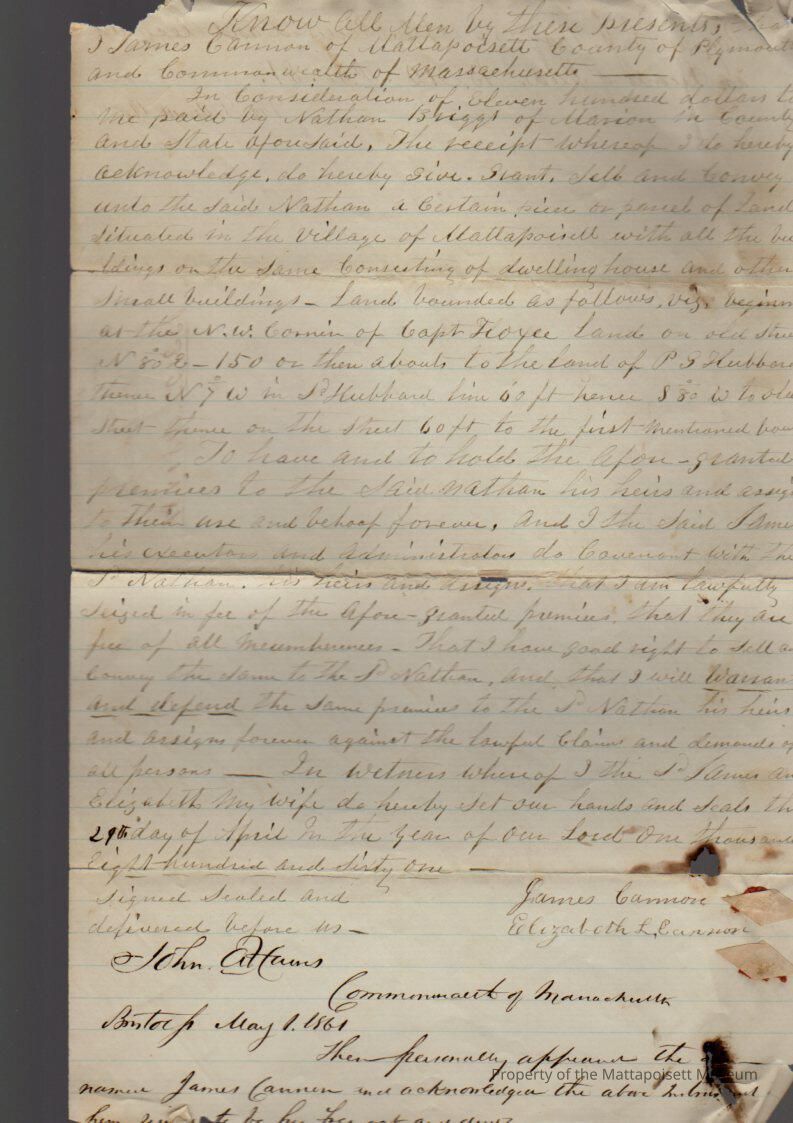 Know All Men by these Presents, Tha
I James Cannon of Mattapoisett County of Plymout
and Commonwealth of Massachusetts
In Consideration of Eleven hundred dollars to
me paid by Nathan Briggs of Marion in County
and State aforesaid, The receipt whereof I do hereby
acknowledge, do hereby Give, Grant, Sell and Convey
unto the said Nathan a Certain piece or parcel of Land
situated in the village of Mattapoisett with all the bu
ldings on the same Consisting of dwelling house and other
small buildings - Land bounded as follows, viz, beginn
at the N.W. Cornin of Capt Land on old stree
N 80 E - 150 or then abouts to the land of P S Hubbard
thence N 7 W in Sd Hubbard line 60 ft hence S 80 W to old
street thence on the street 60 ft to the first mentioned bou
To have and to hold the afore-granted
premises to the Said Nathan his heirs and assig
to their use and behoof forever. And I the Said James
his executors and administrators do Covenant with the
Sd Nathan, his heirs and assigns, that I am lawfully
Seized in fee of the afore-granted premises, that they are
free of all incumbrences - That I have good right to sell a
Convey the same to the Sd Nathan, and that I will Warran
and defend the same premises to the Sd Nathan his heirs
and assigns forever against the lawful Claims and demands of
all persons — In Witness whereof I the Sd James an
Elizabeth my wife do hereby set our hands and seals th
29th day of April In the year of our Lord One thousand
Eight hundred and sixty one —
Signed Sealed and
delivered before us -
James Cannon
Elizabeth L. Cannon
John Atkins
Commonwealth of Massachusetts
Bristol ss May 1. 1861
Then personally appeared the
named James Cannon and acknowledged the above Instrument
to be his free act and deed
Property of the Mattapoisett Museum